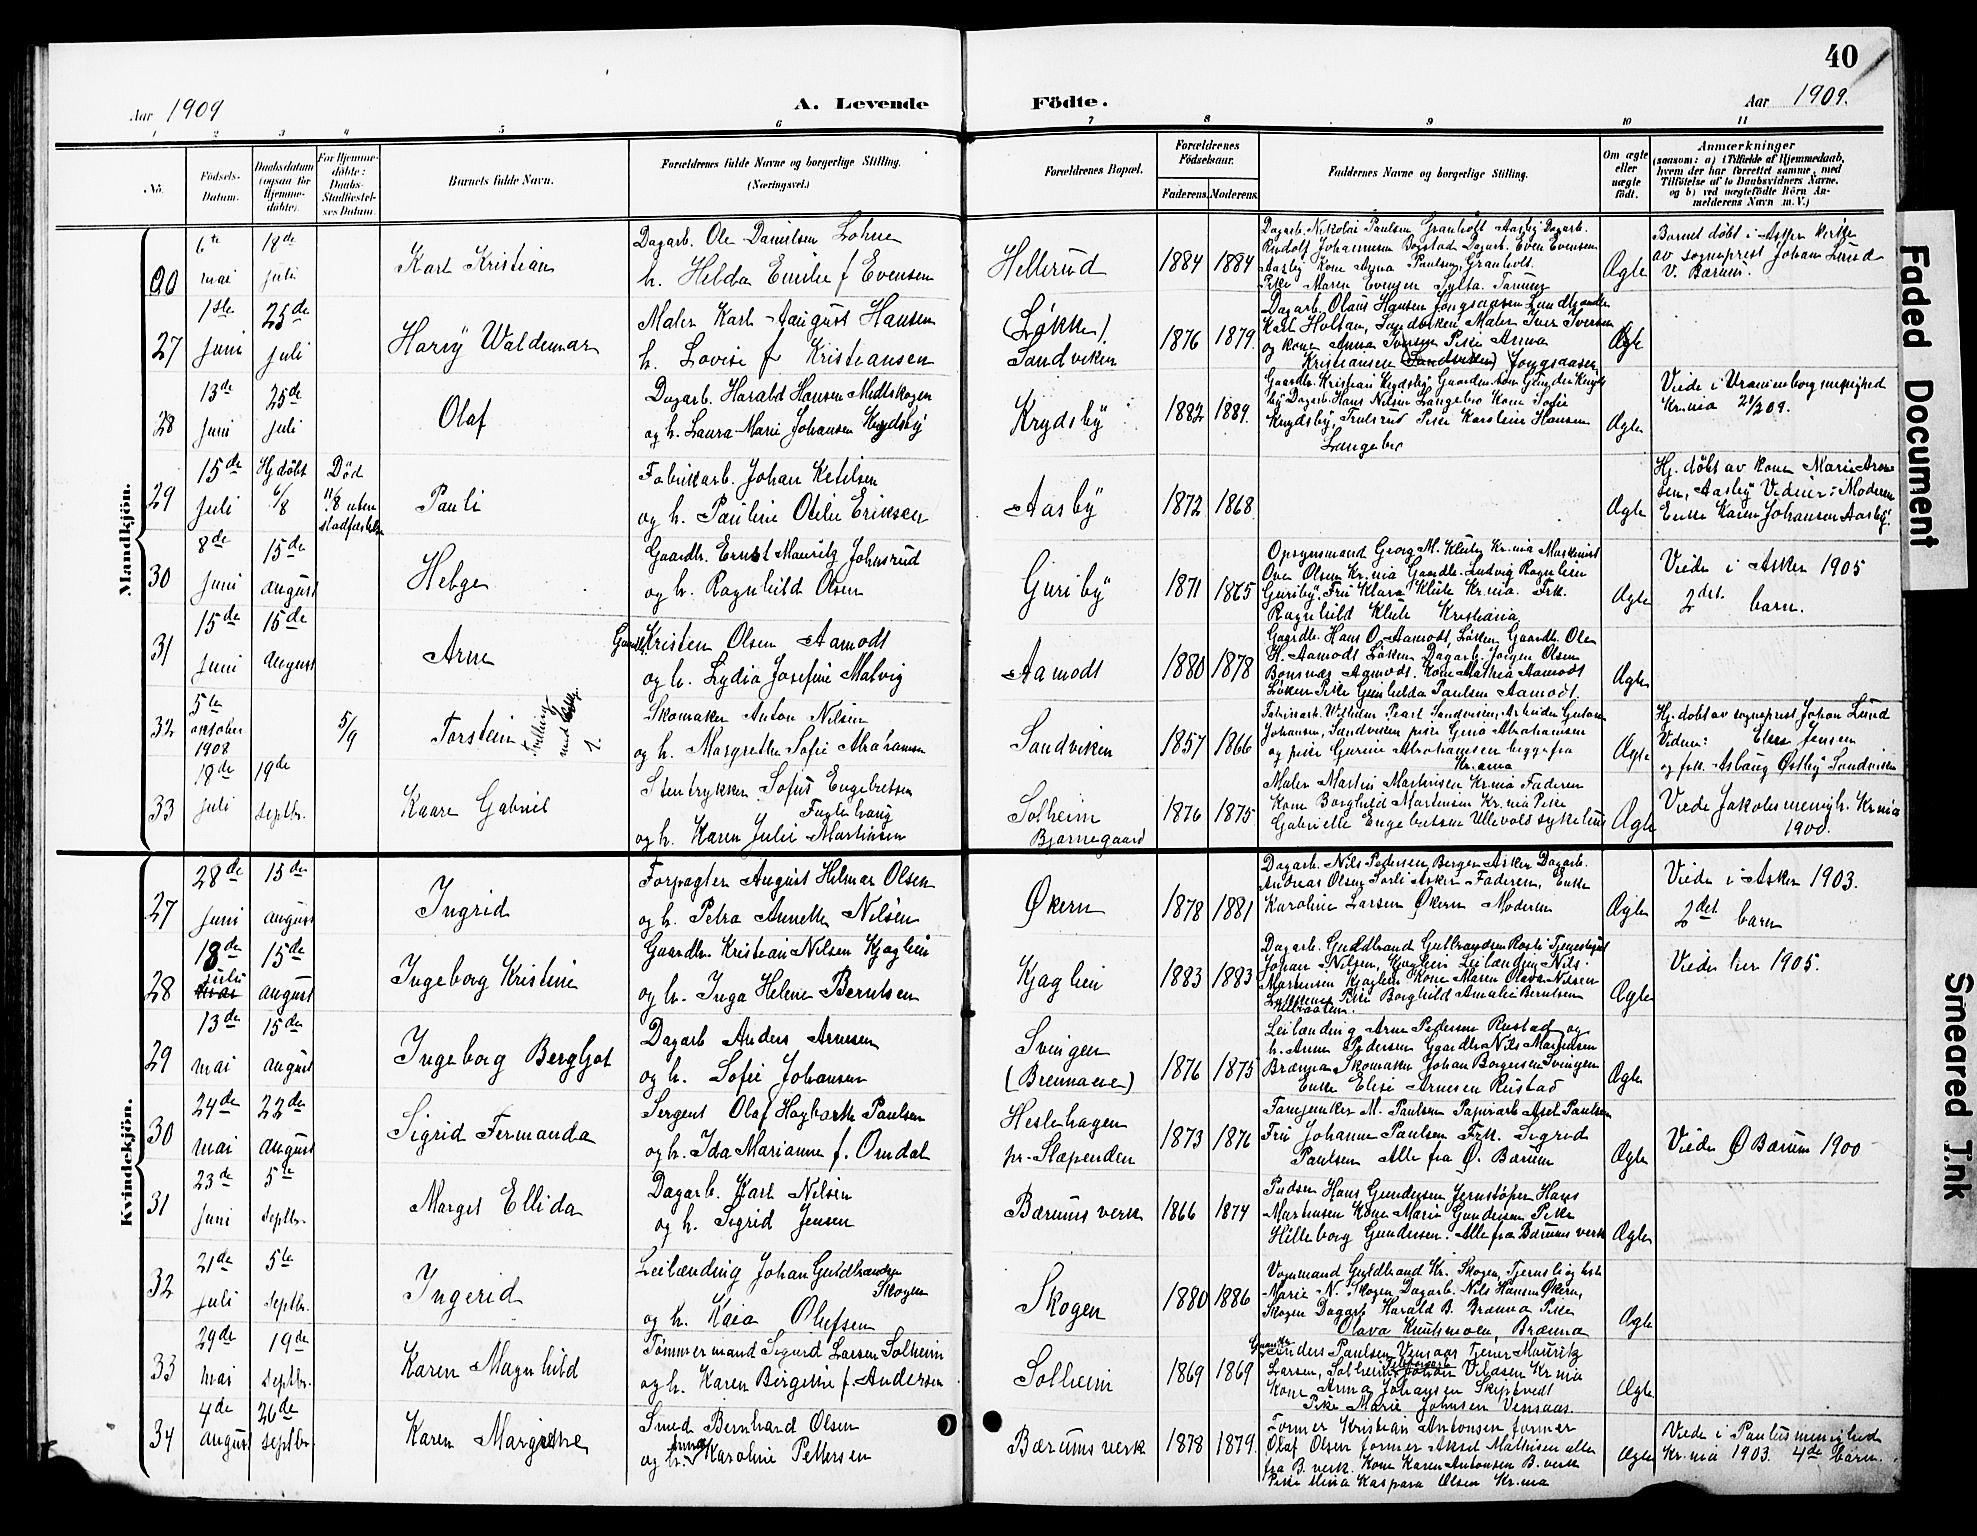 40
Aar 1909 A. Levende Födte. Aar 1909.
1 2 3 4 5 6 7 8 9 10 11
No.
Födsels-Datum.
Daabsdatum (ogsaa for Hjemme-døbte).
For Hjemme-døbte: Daabs-Stadfæstel-ses Datum.
Barnets fulde Navn.
Forældrenes fulde Navne og borgerlige Stilling. (Næringsvei.)
Forældrenes Bopæl.
Forældrenes Fødselsaar.
Faderens. Moderens.
Faddernes Navne og borgerlige Stilling.
Om ægte eller uægte født.
Anmærkninger (saasom: a) i Tilfælde af Hjemmedaab, hvem der har forrettet samme, med Tilföielse af to Daabsvidners Navne, og b) ved uægtefödte Börn Anmelderens Navn m. V.)
Mandkjön.
6te mai 18de juli Karl Kristian
Dagarb. Ole Danielsen Lohne
h. Hilda Emilie f Evensen
Hellerud 1884 1884
Dagarb. Nikolai Paulsen Granholt Aasby Dagarb.
Rudolf Johannesen Bogstad Dagarb. Even Evensen
Aasby Kone Anna Paulsen Granholt
Pike Maren Evensen Tanum
Ægte
Barnet döbt i Asker kirke
av sogneprest Johan Lund
V. Bærum.
27 1ste juni 25de juli Harry Waldemar
Maler Karl August Hansen
h. Lovise f Kristiansen
(Løkke). Sandviken 1876 1879.
Dagarb. Olaus Hansen Jongsaasen Landhandler
Karl Holtan, Sandviken Maler Iver Iversen
og kone Anna Iversen Pike Anna
Kristiansen (Sandviken) Jongsaasen
Ægte
28 13de juni 25de juli Olaf
Dagarb. Harald Hansen Midtskogen
og h. Laura Marie Johansen Krydsby
Krydsby 1882 1889.
Gaardbr. Kristian Krydsby
by Dagarb. Hans Nilsen Langebro Kone Sofie
Krydsby, Pike Karoline Hansen
Langebro
Ægte
Viede i Uranienborg menighed
Kr.nia 21/2 09.
29 15de juli Hj. döbt 6/8 Död 11/8 uten stadfæstelse Pauli
Fabrikarb. Johan Ketilsen
og h. Pauline Otilie Eriksen
Aasby 1872 1868 Ægte
Hj. döbt av kone Marie Arne
sen, Aasby Vidner: Moderen
Enke Karen Johansen Aasby.
30 8de juni 15de august Helge
Gaardbr. Ernst Mauritz Johnsrud
og h. Ragnhild Olsen
Guriby 1871 1865
Opsynsmand Georg M. Klute Kr.nia Maskinist
Olsen Kr.nia Gaardbr. Ludvig
Guriby. Fru Klara Klute Kr.nia. Frk.
Ragnhild Klute Kristiania
Ægte
Viede i Asker 1905
2det barn.
31 15de juni 15de august Arne
Gaardbr. Kristen Olsen Aamodt
og h. Lydia Josefine Malvig
Aamodt 1880 1878
Gaardbr. Hans O. Aamodt, Løken Gaardbr. Ole
H. Aamodt Løken Dagarb. Jørgen Olsen
Bonsnæs Aamodt. Kone Mathea Aamodt
Løken Pike Gunhilda Paulsen Aamodt.
Ægte
32 5te oktober 1908 5/9 Torstein
Tvilling
Skomaker Anton Nilsen
og h. Margrethe Sofie Abrahamsen
Sandviken 1857 1866
Fabrikarb. Wilhelm Sandviken, Arbeider
Johansen, Sandviken pike Gina Abrahamsen
og pike Gurine Abrahamsen begge fra
Kr.ania
Ægte
Hj. döbt av sogneprest Johan Lund
Vidner: Jensen
og frk. Aslaug Østby Sandviken
33 18de juli 19de septbr. Kaare Gabriel
Stentrykker Sofus Engebretsen
Fuglehaug
og h. Karen Julie Martinsen
Solheim Bjørnegaard 1876 1875
Maler Martin Martinsen Kr.nia Faderen
Kone Borghild Martinsen Kr.nia Pike
Gabrielle Engebretsen Ullevold sykehus
Ægte
Viede Jakobs menigh. Kr.nia
1900.
Kvindekjön.
27 28de juni 15de august Ingrid
Forpagter August Hilmar Olsen
og h. Petra Annette Nilsen
Økern 1878 1881
Dagarb. Nils Pedersen Berger Asker Dagarb.
Andreas Olsen Sorli Asker Faderen, Enke
Karoline Larsen Økern Moderen
Ægte
Viede i Asker 1903.
2det barn
28 18de juli 15de august Ingeborg Kristine
Gaardbr. Kristian Nilsen Kjaglien
og h. Inga Helene Berntsen
Kjaglien 1883 1883
Dagarb. Guldbrand Gulbrandsen
Johan Nilsen, Kjaglien Leilænding Nils
Martinsen Kjaglien Kone Maren Olava Nilsen
Pike Borghild Amalie Berntsen
Ægte
Viede her 1905.
29 13de mai 15de august Ingeborg Bergljot
Dagarb Anders Arnesen
og h. Sofie Johansen
Svingen (Brennaene) 1876 1875
Leilænding Arne Pedersen Rustad og
h. Anne Pedersen Gaardbr. Nils Martinsen
Brænna Skomaker Johan Borgersen Svingen
Enke Elise Arnesen Rustad
Ægte
30 24de mai 22de august Sigrid Fernanda
Sergent Olaf Hagbarth Paulsen
og h. Ida Marianne f. Omdal
Heslehagen pr. Slæpenden 1873 1876
M. Paulsen Papirarb. Axel Paulsen
Fru Johanne Paulsen Frk. Sigrid
Paulsen Alle fra Ø. Bærum
Ægte
Viede Ø Bærum 1900
31 23de juni 5te septbr. Margit Ellida
Dagarb. Karl Nilsen
og h. Sigrid Jensen
Bærums verk 1866 1874
Pudser Hans Gundersen Jernstøper Hans
Martinsen Kone Marie Gundersen Pike
Hilleborg Gundersen. Alle fra Bærums verk
Ægte
32 21de juli 5te septbr. Ingerid
Leilænding Johan Guldbrandsen
Skogen
og h. Kaia Olufsen
Skogen 1880 1886
Vognmand Guldbrand Kr. Skogen,
Marie N. Skogen Dagarb. Nils Hansen Økern,
Skogen Dagarb Harald B. Brænna Pike
Olava Knutsmoen, Brænna
Ægte
33 29de mai 19de septbr. Karen Magnhild
Tømmermand Sigurd Larsen Solheim
og h. Karen Birgitte f. Andersen
Solheim 1869 1869
Anders Paulsen Vensaas Mauritz
Larsen, Solheim Johan Vildsen Kr.nia
Kone Anna Johansen Skiptvedt
Pike Marie Johnsen Vensaas
Ægte
34 4de august 26de septbr Karen Margrethe
Smed Bernhard Olsen
og h. Anna Karoline Pettersen
Bærums verk 1878 1879.
Former Kristian Antonsen former
Olaf Olsen former Aksel Mathisen alle
fra B. verk. Kone Karen Antonsen B. verk
Pike Mina Kaspara Olsen Kr.nia
Ægte
Viede i Paulus menighed
Kr.nia 1903. 4de barn.
Faded Document
Smeared Ink